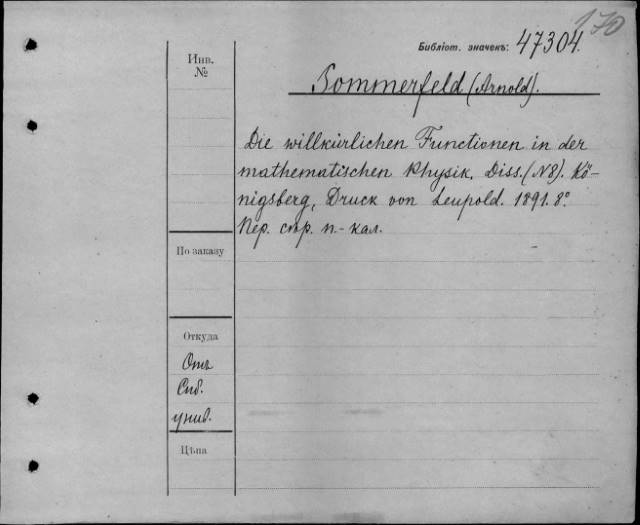 170
Библіот. значекъ: 47304.
Инв.
№
Sommerfeld (Arnold).
Die willkürlichen Functionen in der
mathematischen Physik. Diss. (N8). Kö-
nigsberg, Druck von Leupold. 1891. 8°.
Пер. стр. п-кал.
По заказу
Откуда
Отъ
Спб.
унив.
Цѣна